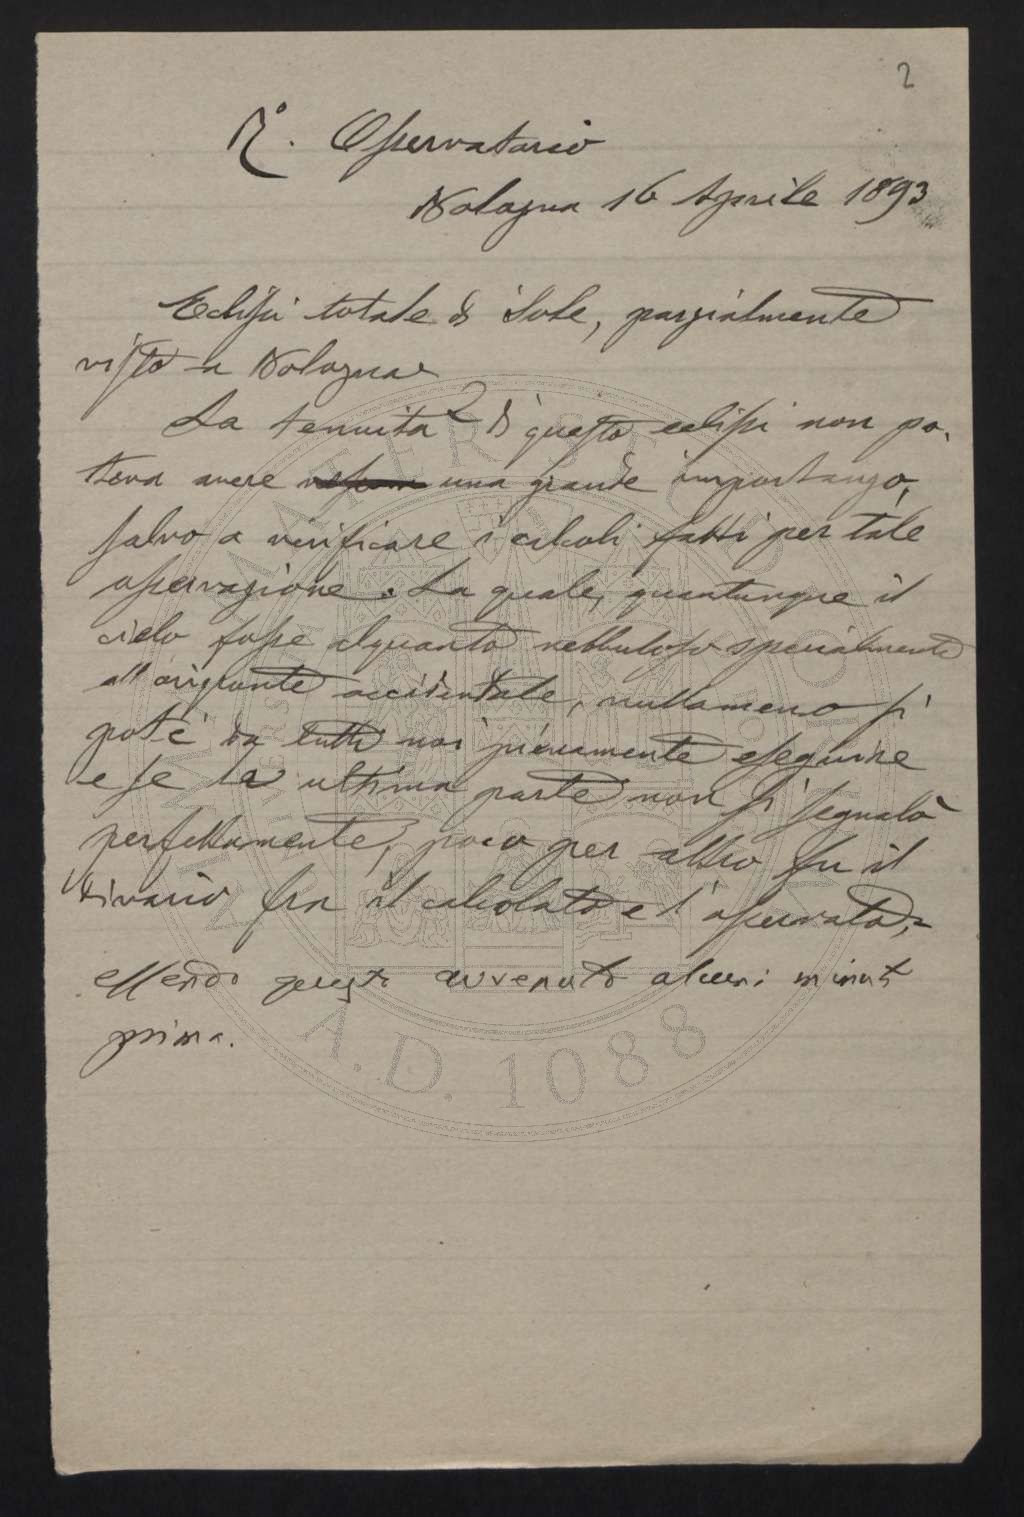 2
R.° Osservatorio
Bologna 16 Aprile 1893
Eclissi totale di Sole, parzialmente
visto a Bologna
La tenuità di questo eclissi non po-
teva avere una grande importanza,
salvo a verificare i calcoli fatti per tale
osservazione. La quale, quantunque il
cielo fosse alquanto nebbuloso specialmente
all'orizzonte occidentale, nullameno si
potè da tutti noi pienamente eseguire
e se la ultima parte non si segnalò
perfettamente, poco per altro fu il
divario fra il calcolato e l'osservato,
essendo questo avvenuto alcuni minuti
prima.
A.D. 1088